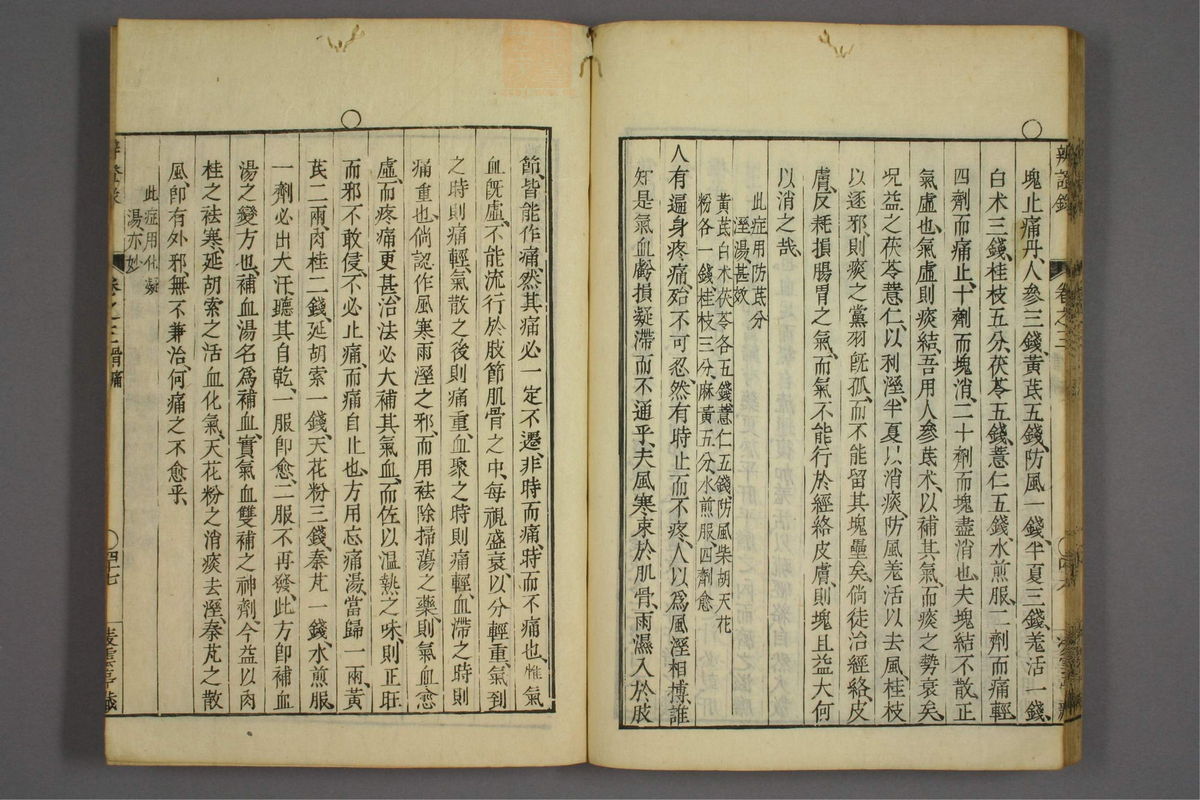 辨證錄
卷之三
塊止痛丹人參三錢黃芪五錢防風一錢半夏三錢羗活一錢
白朮三錢桂枝五分茯苓五錢薏仁五錢水煎服一劑而痛輕
四劑而痛止十劑而塊消二十劑而塊盡消也夫塊結不散正
氣虛也氣虛則痰結吾用人參芪朮以補其氣而痰之勢衰矣
况益之茯苓薏仁以利溼半夏以消痰防風羗活以去風桂枝
以逐邪則痰之黨羽旣孤而不能留其塊壘矣倘徒治經絡皮
膚反耗損腸胃之氣而氣不能行於經絡皮膚則塊且益大何
以消之哉
此症用防芪分
溼湯甚效
黃芪白朮茯苓各五錢薏仁五錢防風柴胡天花
粉各一錢桂枝三分麻黃五分水煎服四劑愈
人有遍身疼痛殆不可忍然有時止而不疼人以爲風溼相搏誰
知是氣血虧損凝滯而不通乎夫風寒束於肌骨雨濕入於肢
節皆能作痛然其痛必一定不遷非時而痛時而不痛也惟氣
血旣虛不能流行於肢節肌骨之中每視盛衰以分輕重氣到
之時則痛輕氣散之後則痛重血聚之時則痛輕血滯之時則
痛重也倘認作風寒雨溼之邪而用袪除掃蕩之藥則氣血愈
虛而疼痛更甚治法必大補其氣血而佐以溫熱之味則正旺
而邪不敢侵不必止痛而痛自止也方用忘痛湯當歸一兩黃
芪二兩肉桂二錢延胡索一錢天花粉三錢秦艽一錢水煎服
一劑必出大汗聽其自乾一服卽愈二服不再發此方卽補血
湯之變方也補血湯名爲補血實氣血雙補之神劑今益以肉
桂之袪寒延胡索之活血化氣天花粉之消痰去溼秦艽之散
風卽有外邪無不兼治何痛之不愈乎
此症用化凝
湯亦妙
卷之三
四十七